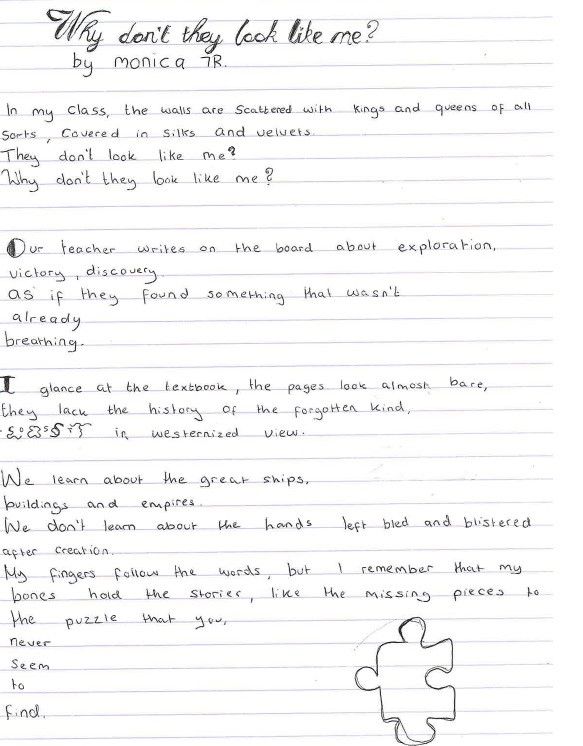 Why don't they look like me?
by monica 7R.
In my class, the walls are scattered with kings and queens of all
sorts, Covered in silks and velvets.
They don't look like me?
Why don't they look like me?
Our teacher writes on the board about exploration,
victory, discovery
as if they found something that wasn't
already
breathing.
I glance at the textbook, the pages look almost bare,
they lack the history of the forgotten kind,
in westernized view.
We learn about the great ships,
buildings and empires.
We don't learn about the hands left bled and blistered
after creation.
My fingers follow the words, but I remember that my
bones hold the stories, like the missing pieces to
the puzzle that you,
never
seem
to
find.